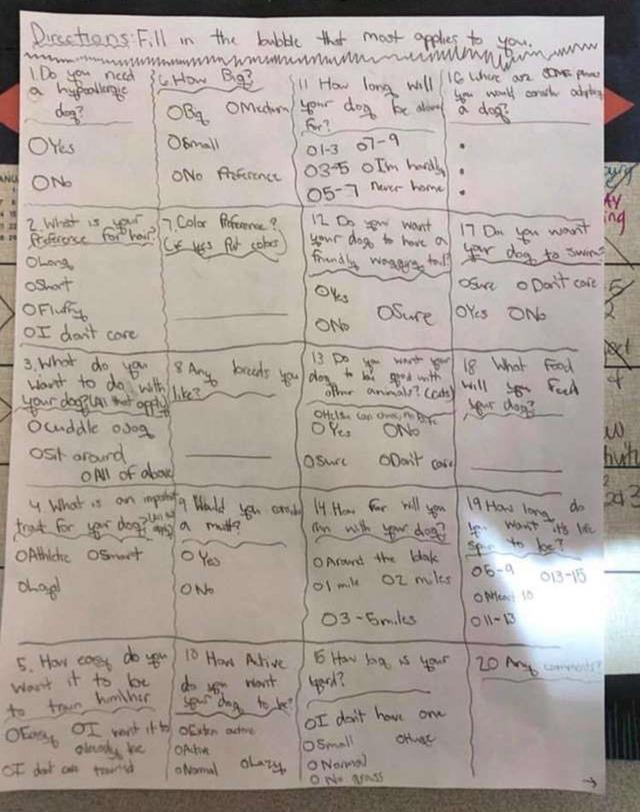 Directions: Fill in the bubble that most applies to you.
1. Do you need
a hypoallergic
dog?
O Yes
O No
2. What is your
Preference for hair?
O Long
O Short
O Fluffy
O I don't care
3. What do you
want to do with
your dog? (All that apply)
O Cuddle O Jog
O Sit around
O All of above
4. What is an important
trait for your dog?
O Athletic O Smart
O Loyal
5. How easy do you
want it to be
to train him/her
O Easy O I want it to
already be
O I don't care trained
6. How Big?
O Big O Medium
O Small
O No Preference
7. Color Preference?
(If yes Put color)
8 Any breeds you
like?
9 Would you consider
a mutt?
O Yes
O No
10 How Active
do you want
your dog to be?
O Extra active
O Active
O Normal O Lazy
11 How long will
your dog be alone
for?
O 1-3 O 7-9
O 3-5 O I'm hardly
O 5-7 never home
12 Do you want
your dog to have a
friendly wagging tail?
O Yes
O No O Sure
13 Do you want your
dog to be good with
other animals? (cats)
O Yes O No
O Sure O Don't care
14 How far will you
run with your dog?
O Around the block
O 1 mile O 2 miles
O 3-5 miles
15 How big is your
yard?
O I don't have one
O Small O Huge
O Normal
O No grass
16 Where are some places
you would consider adopting
a dog?
17 Do you want
your dog to swim?
O Sure O Don't care
O Yes O No
18 What Food
will you feed
your dog?
19 How long do
you want its life
span to be?
O 6-9 O 13-15
O At least 10
O 11-13
20 Any comments?